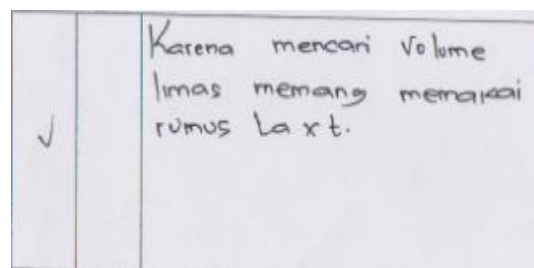 Karena mencari Volume
limas memang memakai
rumus La x t.